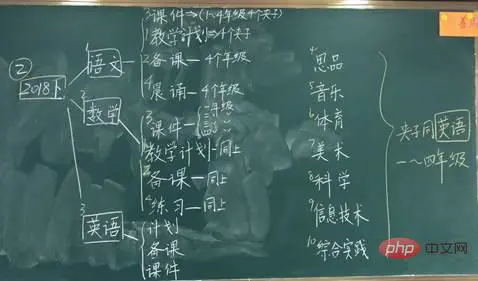 ②
2018下
1 语文
3 课件⇒(1~4年级4个夹子)
1 教学计划⇒4个夹子
2 备课—4个年级
4 晨诵—4个年级
2 数学
3 课件
一年级
二
三
四
1 教学计划—同上
2 备课—同上
4 练习—同上
3 英语
计划
备课
课件
4 思品
5 音乐
6 体育
7 美术
8 科学
9 信息技术
10 综合实践
夹子同英语
一~四年级
php 中文网